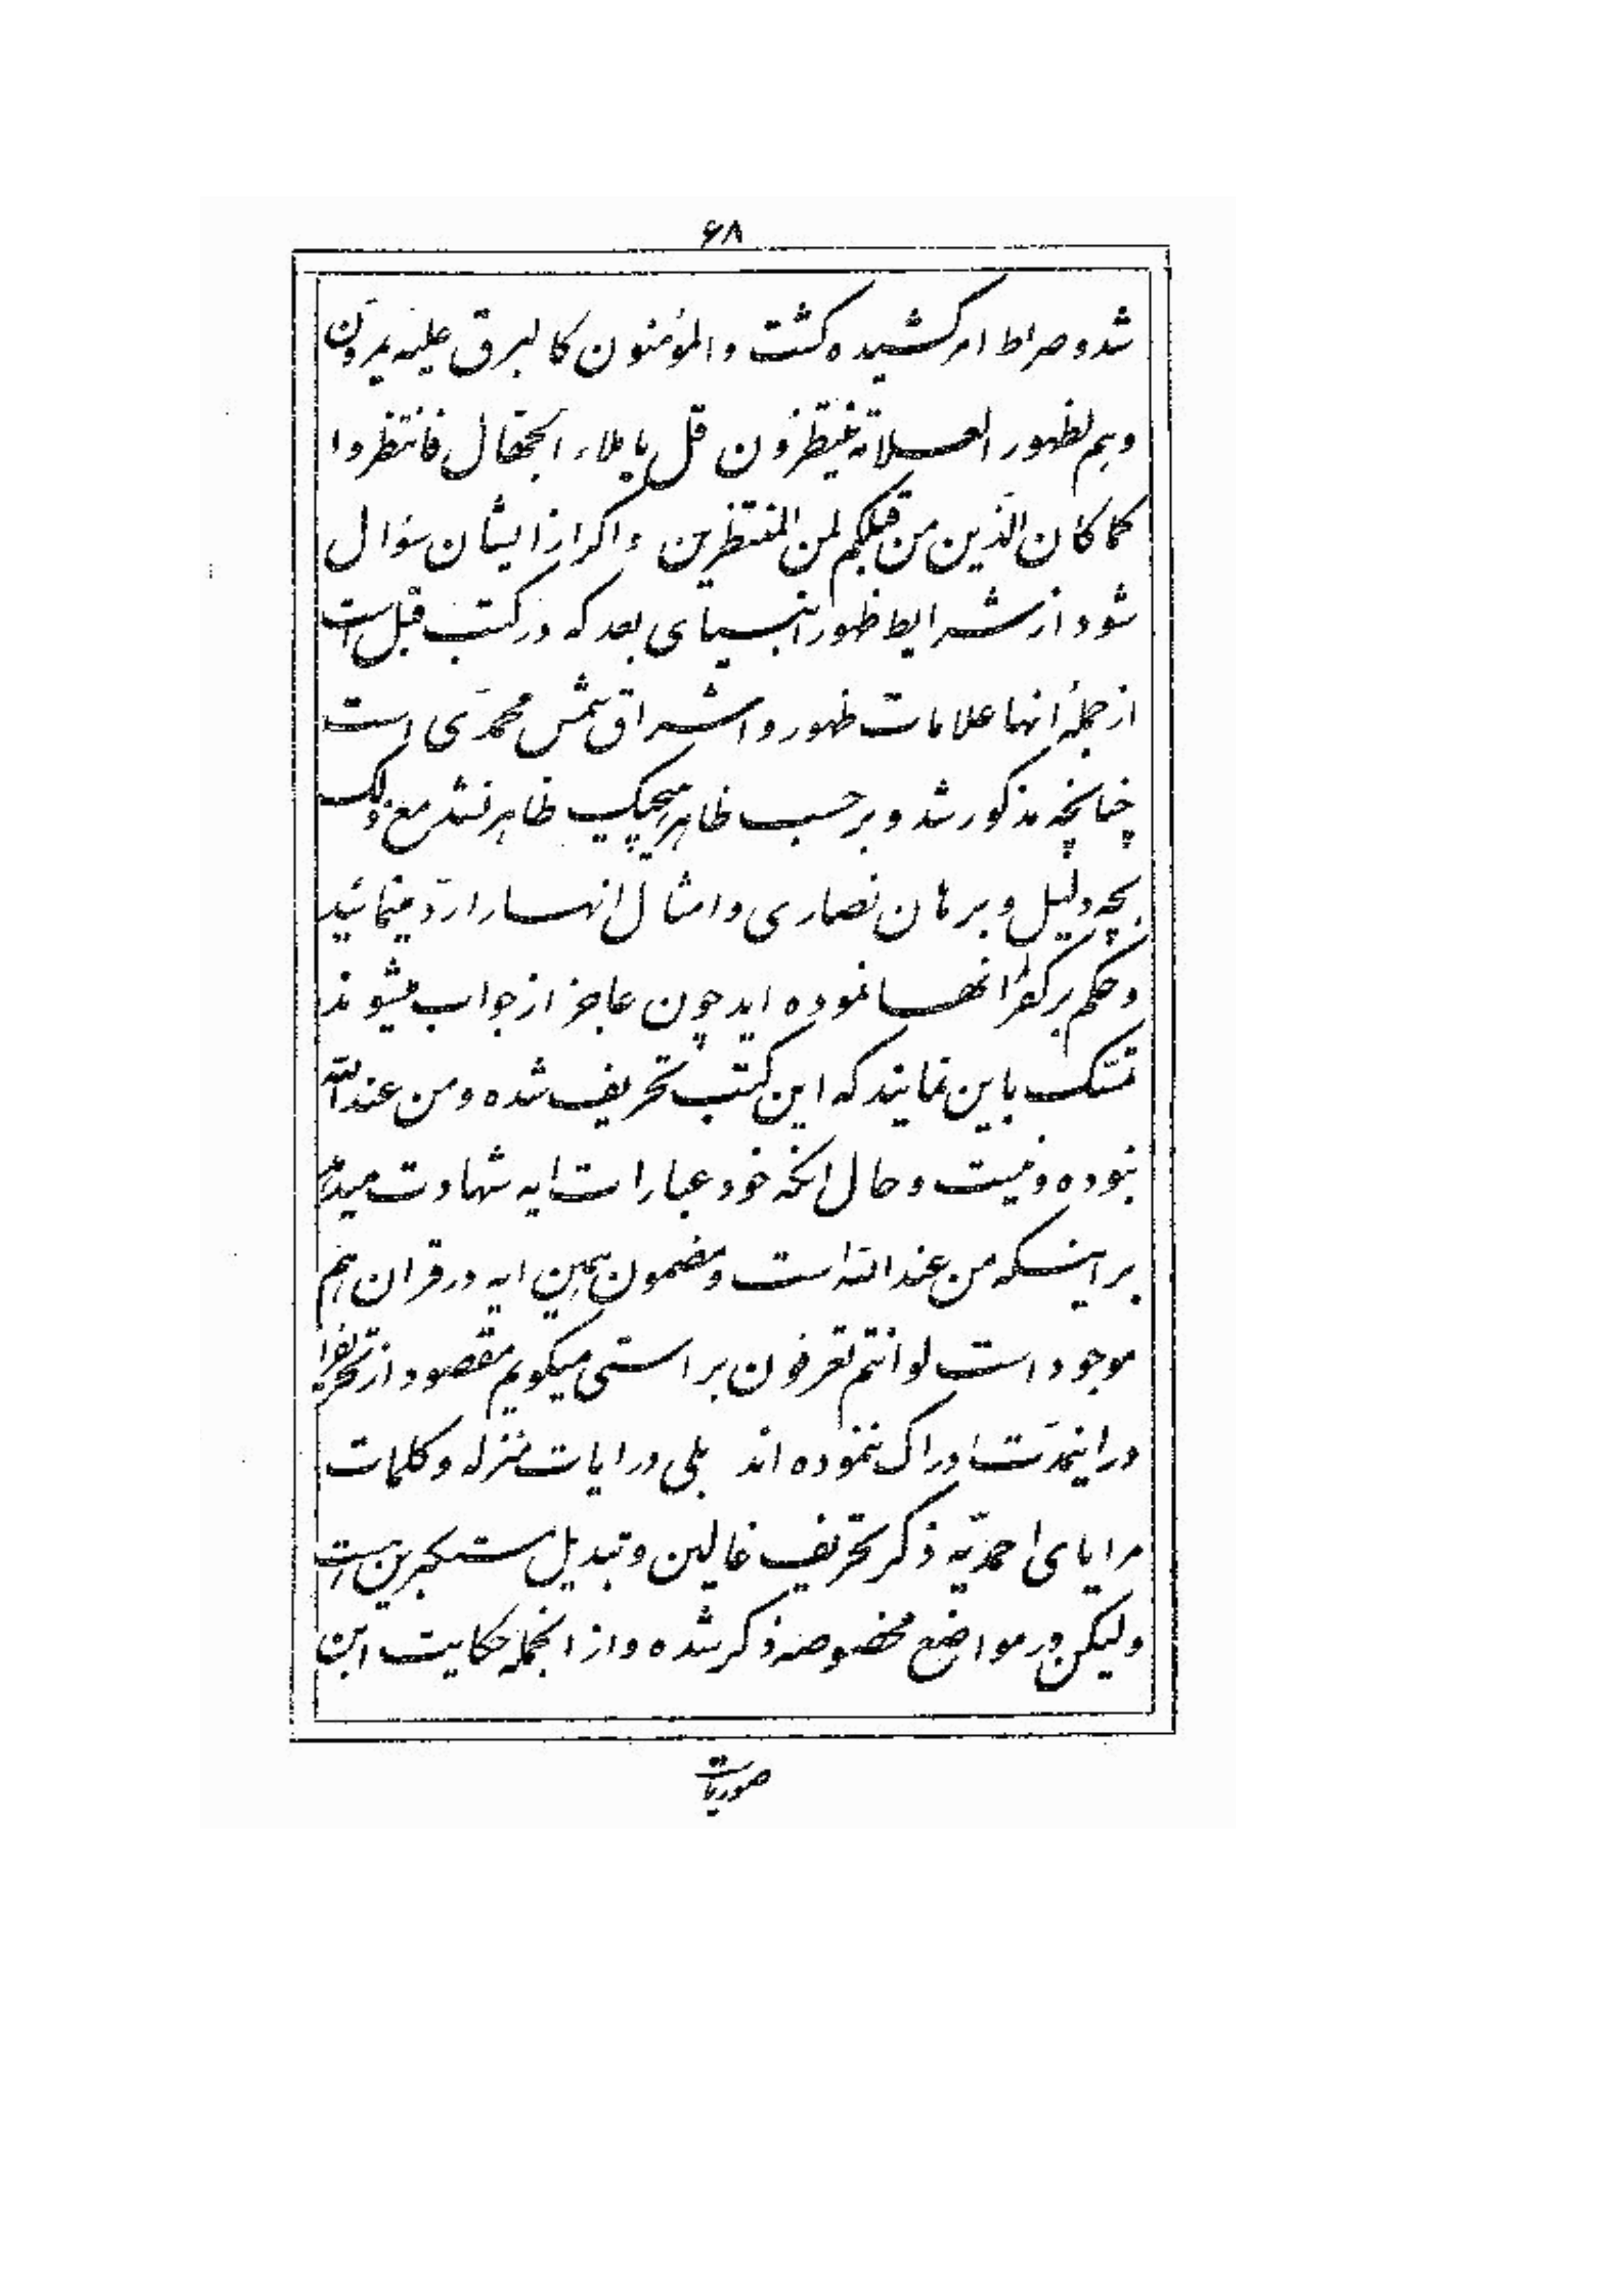 ۶۸
شد و صراط امر کشیده کشت و المؤمنون کالبرق علیه یمرّون
و هم لظهور العلامة ینتظرون قل یا ملاء الجهّال فانتظروا
کما کان الّذین من قبلکم لمن المنتظرین و اکر از ایشان سؤال
شود از شرایط ظهور انبیای بعد که در کتب قبل است
از جملهٔ انها علامات ظهور و اشراق شمس محمّدی است
چنانچه مذکور شد و بر حسب ظاهر هیچیک ظاهر نشد مع ذلک
بچه دلیل و برهان نصاری و امثال انها را ردّ مینمائید
و حکم بر کفر انها نموده اید چون عاجز از جواب میشوند
تمسّک باین نمایند که این کتب تحریف شده و من عند الله
نبوده و نیست و حال انکه خود عبارات ایه شهادت میدهد
بر اینکه من عند الله است و مضمون همین ایه در قران هم
موجود است لو انتم تعرفون براستی میکویم مقصود از تحریف را
در اینمدّت ادراک ننموده اند بلی در ایات منزله و کلمات
مرایای احمدیّه ذکر تحریف غالین و تبدیل مستکبرین است
ولیکن در مواضع مخصوصه ذکر شده و از انجمله حکایت ابن
صوریاست